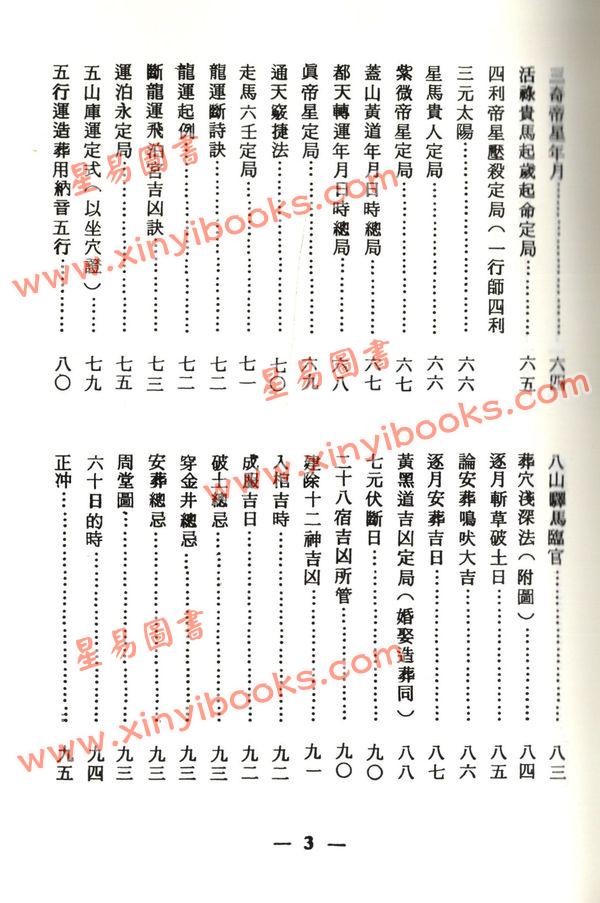 三奇帝星年月……六四
活祿貴馬起歲起命定局……六五
四利帝星壓殺定局(一行師四利
三元太陽……六六
星馬貴人定局……六六
紫微帝星定局……六七
蓋山黃道年月日時總局……六七
都天轉運年月日時總局……六八
眞帝星定局……六九
通天竅捷法……七〇
走馬六壬定局……七一
龍運斷詩訣……七二
龍運起例……七二
斷龍運飛泊宮吉凶訣……七三
運泊永定局……七五
五山庫運定式(以坐穴證)……七九
五行運造葬用納音五行……八〇
八山驛馬臨官……八三
葬穴淺深法(附圖)……八四
逐月斬草破土日……八五
論安葬鳴吠大吉……八六
逐月安葬吉日……八七
黃黑道吉凶定局(婚娶造葬同)……八八
七元伏斷日……九〇
二十八宿吉凶所管……九〇
建除十二神吉凶……九一
入棺吉時……九二
成服吉日……九二
破土總忌……九三
穿金井總忌……九三
安葬總忌……九三
周堂圖……九三
六十日的時……九四
正冲……九五
— 3 —
星易圖書
www.xinyibooks.com
星易圖書
www.xinyibooks.com
星易圖書
www.xinyibooks.com
星易圖書
www.xinyibooks.com